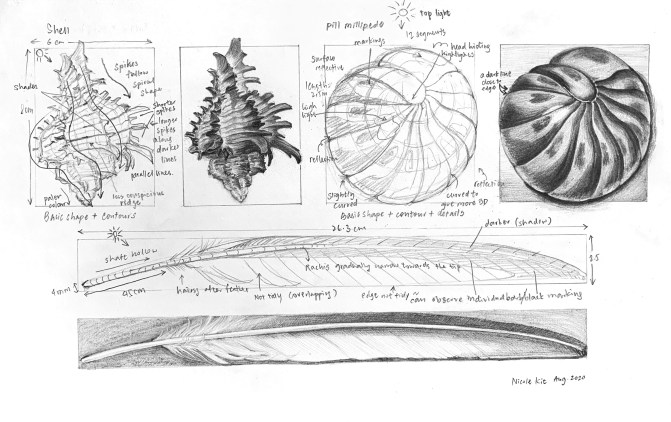 Shell
6 cm
shader
8cm
spikes
follow
spiral
shape
shorter
spikes
longer
spikes
along
darker
lines
parallel lines
paler
colour
less conspicuous
ridge
Basic shape + contours
pill millipede
top light
12 segments
markings
head hiding
highlights
surface
reflective
length:
2.5cm
high
light
reflection
slightly
curved
reflection
curved to
give more 3D
Basic shape + contour + details
a dark line
close to
edge
26.3 cm
darker (shadow)
shaft hollow
Rachis gradually narrow towards the tip
2.5
4mm
4.5cm
hairy after feather
Not tidy (overlapping)
Edge not tidy
can observe individual barb/black marking
Nicole Kit Aug. 2020